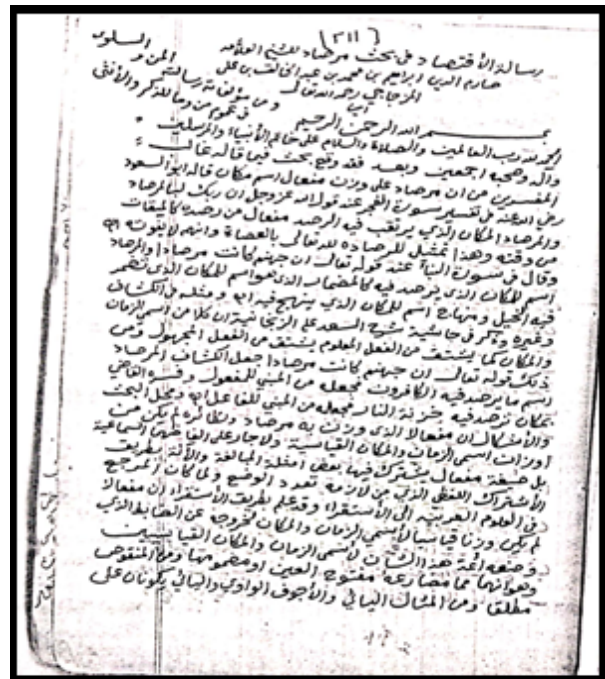 (٣١١)
رسالة الأقتصاد في بحث مرصاد للشيخ العلامة
صارم الدين ابراهيم بن محمد بن عبد الخالق بن علي
المزجاجي رحمه الله تعالى
ومن مؤلفاته رسالة المن والسلوى
في عموم من وما للذكر والأنثى
بسم الله الرحمن الرحيم
الحمد لله رب العالمين والصلاة والسلام على خاتم الأنبياء والمرسلين
وآله وصحبه اجمعين وبعد فقد وقع بحث فيما قاله غالب
المفسرين من ان مرصاد على وزن مفعال اسم مكان قاله ابو السعود
رضي الله عنه في تفسير سورة الفجر عند قول الله عز وجل ان ربك لبالمرصاد
والمرصاد المكان الذي يرتقب فيه الرصد مفعال من رصده كالميقات
من وقته وهذا تمثيل للرصاده لله تعالى بالعصاة وانهم لا يفوتونه اه
وقال في سورة النبأ عند قوله تعالى ان جهنم كانت مرصادا والمرصاد
اسم للمكان الذي يرصد فيه كالمضمار الذي هو اسم للمكان الذي تضمر
فيه الخيل ومنهاج اسم للمكان الذي ينهج فيه اه ومثله في الكشاف
وغيره وذكر في حاشية شرح السعد على الزنجانية ان كلا من اسم الزمان
والمكان كما يشتق من الفعل المعلوم يشتق من الفعل المجهول ومن
ذلك قوله تعالى ان جهنم كانت مرصادا جعل الكشاف المرصاد
اسم ما يرصد فيه الكافرون فجعله من المبني للمفعول وفسره القاضي
بمكان ترصد فيه خزنة النار فجعله من المبني للفاعل اه ومحل البحث
والأشكال ان مفعالا الذي وزنت به مرصاد ونظائره لم يكن من
اوزان اسمي الزمان والمكان القياسية ولا جار على الفاظهما السماعية
بل صيغة مفعال يشترك فيها بعض امثلة المبالغة والآلة بطريق
الأشتراك اللفظي الذي من لازمه تعدد الوضع ولما كان المرجع
في العلوم العربية الى الأستقراء وقد علم بطريق الأستقراء ان مفعالا
لم يكن وزنا قياسا لأسمي الزمان والمكان لخروجه عن الضابط الذي
وضعه أئمة هذا الشان لأسمي الزمان والمكان القياسيين
وهو انهما مما مضارعه مفتوح العين او مضمومها ومن المنقوص
مطلقا ومن المثال اليائي والأجوف الواوي واليائي يكونان على